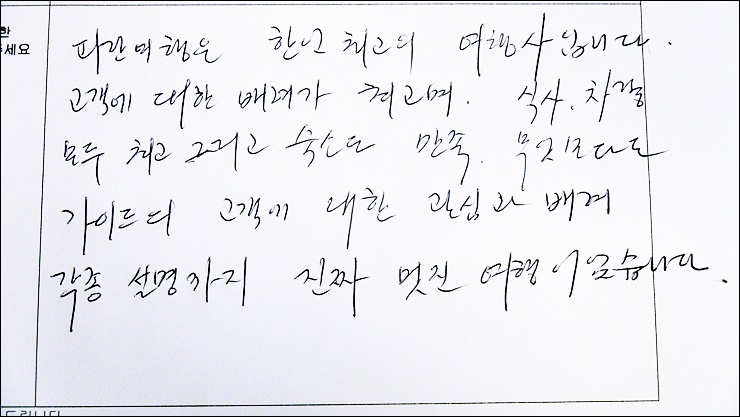 한
주세요
파란여행은 최고의 여행사입니다.
고객에 대한 배려가 최고며. 식사. 차량
모두 최고 그리고 숙소도 만족. 무엇보다도
가이드의 고객에 대한 관심과 배려
각종 설명까지 진짜 멋진 여행이었습니다.
드립니다